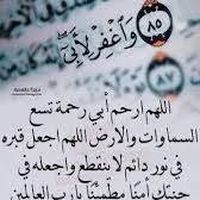 ٨٥ وَاغْفِرْ لِأَبِي
٨٧
اللهم ارحم أبي رحمة تسع
السماوات والارض اللهم اجعل قبره
في نور دائم لا ينقطع واجعله في
جنتك آمنا مطمئنا يارب العالمين